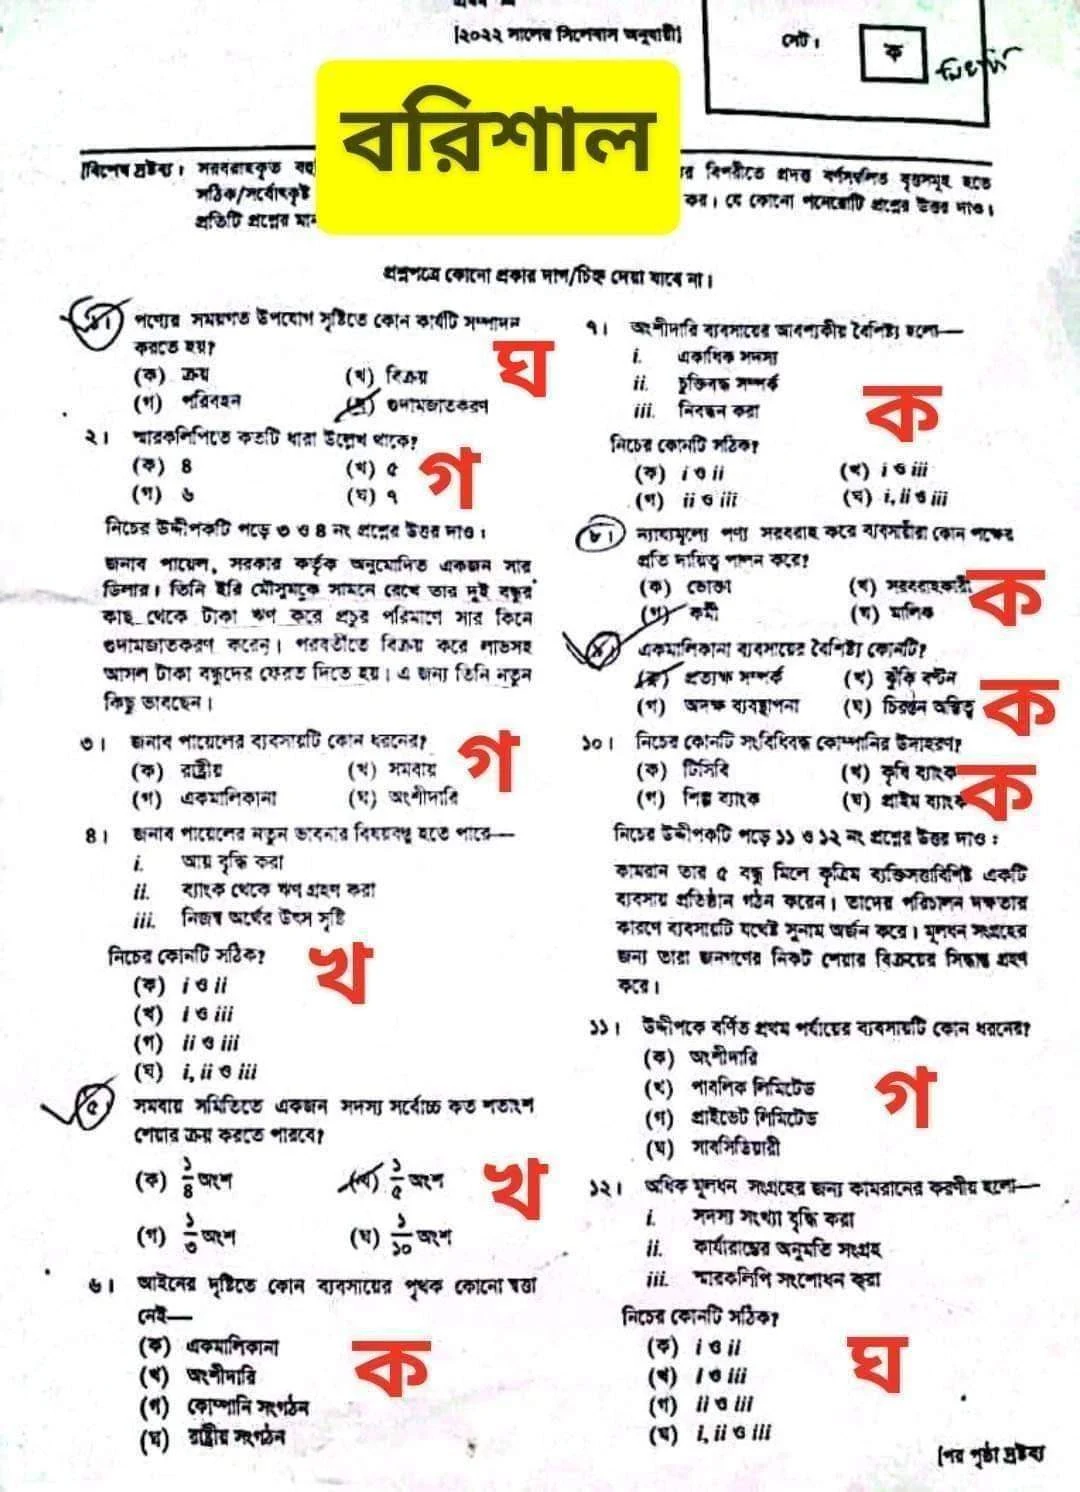 [২০২২ সালের সিলেবাস অনুযায়ী]
সেট :
ক
বরিশাল
[বিশেষ দ্রষ্টব্য : সরবরাহকৃত
র বিপরীতে প্রদত্ত বর্ণসম্বলিত বৃত্তসমূহ হতে
সঠিক/সর্বোৎকৃষ্ট
কর। যে কোনো পনেরোটি প্রশ্নের উত্তর দাও।
প্রতিটি প্রশ্নের মান
প্রশ্নপত্রে কোনো প্রকার দাগ/চিহ্ন দেয়া যাবে না।
১। পণ্যের সময়গত উপযোগ সৃষ্টিতে কোন কার্যটি সম্পাদন
করতে হয়?
(ক) ক্রয় (খ) বিক্রয়
(গ) পরিবহন (ঘ) গুদামজাতকরণ
ঘ
২। স্মারকলিপিতে কতটি ধারা উল্লেখ থাকে?
(ক) ৪ (খ) ৫
(গ) ৬ (ঘ) ৭
গ
নিচের উদ্দীপকটি পড়ে ৩ ও ৪ নং প্রশ্নের উত্তর দাও :
জনাব পায়েল, সরকার কর্তৃক অনুমোদিত একজন সার
ডিলার। তিনি ইরি মৌসুমকে সামনে রেখে তার দুই বন্ধুর
কাছ থেকে টাকা ঋণ করে প্রচুর পরিমাণে সার কিনে
গুদামজাতকরণ করেন। পরবর্তীতে বিক্রয় করে লাভসহ
আসল টাকা বন্ধুদের ফেরত দিতে হয়। এ জন্য তিনি নতুন
কিছু ভাবছেন।
৩। জনাব পায়েলের ব্যবসায়টি কোন ধরনের?
(ক) রাষ্ট্রীয় (খ) সমবায়
(গ) একমালিকানা (ঘ) অংশীদারি
গ
৪। জনাব পায়েলের নতুন ভাবনার বিষয়বস্তু হতে পারে—
i. আয় বৃদ্ধি করা
ii. ব্যাংক থেকে ঋণ গ্রহণ করা
iii. নিজস্ব অর্থের উৎস সৃষ্টি
নিচের কোনটি সঠিক?
(ক) i ও ii
(খ) i ও iii
(গ) ii ও iii
(ঘ) i, ii ও iii
খ
৫। সমবায় সমিতিতে একজন সদস্য সর্বোচ্চ কত শতাংশ
শেয়ার ক্রয় করতে পারবে?
(ক) ১/৪ অংশ (খ) ১/৫ অংশ
(গ) ১/৩ অংশ (ঘ) ১/১০ অংশ
খ
৬। আইনের দৃষ্টিতে কোন ব্যবসায়ের পৃথক কোনো স্বত্তা
নেই—
(ক) একমালিকানা
(খ) অংশীদারি
(গ) কোম্পানি সংগঠন
(ঘ) রাষ্ট্রীয় সংগঠন
ক
৭। অংশীদারি ব্যবসায়ের আবশ্যকীয় বৈশিষ্ট্য হলো—
i. একাধিক সদস্য
ii. চুক্তিবদ্ধ সম্পর্ক
iii. নিবন্ধন করা
নিচের কোনটি সঠিক?
(ক) i ও ii (খ) i ও iii
(গ) ii ও iii (ঘ) i, ii ও iii
ক
৮। ন্যায্যমূল্যে পণ্য সরবরাহ করে ব্যবসায়ীরা কোন পক্ষের
প্রতি দায়িত্ব পালন করে?
(ক) ভোক্তা (খ) সরবরাহকারী
(গ) কর্মী (ঘ) মালিক
ক
৯। একমালিকানা ব্যবসায়ের বৈশিষ্ট্য কোনটি?
(ক) প্রত্যক্ষ সম্পর্ক (খ) ঝুঁকি বণ্টন
(গ) অদক্ষ ব্যবস্থাপনা (ঘ) চিরন্তন অস্তিত্ব
ক
১০। নিচের কোনটি সংবিধিবদ্ধ কোম্পানির উদাহরণ?
(ক) টিসিবি (খ) কৃষি ব্যাংক
(গ) শিল্প ব্যাংক (ঘ) প্রাইম ব্যাংক
ক
নিচের উদ্দীপকটি পড়ে ১১ ও ১২ নং প্রশ্নের উত্তর দাও :
কামরান তার ৫ বন্ধু মিলে কৃত্রিম ব্যক্তিসত্তাবিশিষ্ট একটি
ব্যবসায় প্রতিষ্ঠান গঠন করেন। তাদের পরিচালন দক্ষতার
কারণে ব্যবসায়টি যথেষ্ট সুনাম অর্জন করে। মূলধন সংগ্রহের
জন্য তারা জনগণের নিকট শেয়ার বিক্রয়ের সিদ্ধান্ত গ্রহণ
করে।
১১। উদ্দীপকে বর্ণিত প্রথম পর্যায়ের ব্যবসায়টি কোন ধরনের?
(ক) অংশীদারি
(খ) পাবলিক লিমিটেড
(গ) প্রাইভেট লিমিটেড
(ঘ) সাবসিডিয়ারী
গ
১২। অধিক মূলধন সংগ্রহের জন্য কামরানের করণীয় হলো—
i. সদস্য সংখ্যা বৃদ্ধি করা
ii. কার্যারম্ভের অনুমতি সংগ্রহ
iii. স্মারকলিপি সংশোধন করা
নিচের কোনটি সঠিক?
(ক) i ও ii
(খ) i ও iii
(গ) ii ও iii
(ঘ) i, ii ও iii
ঘ
[পর পৃষ্ঠা দ্রষ্টব্য